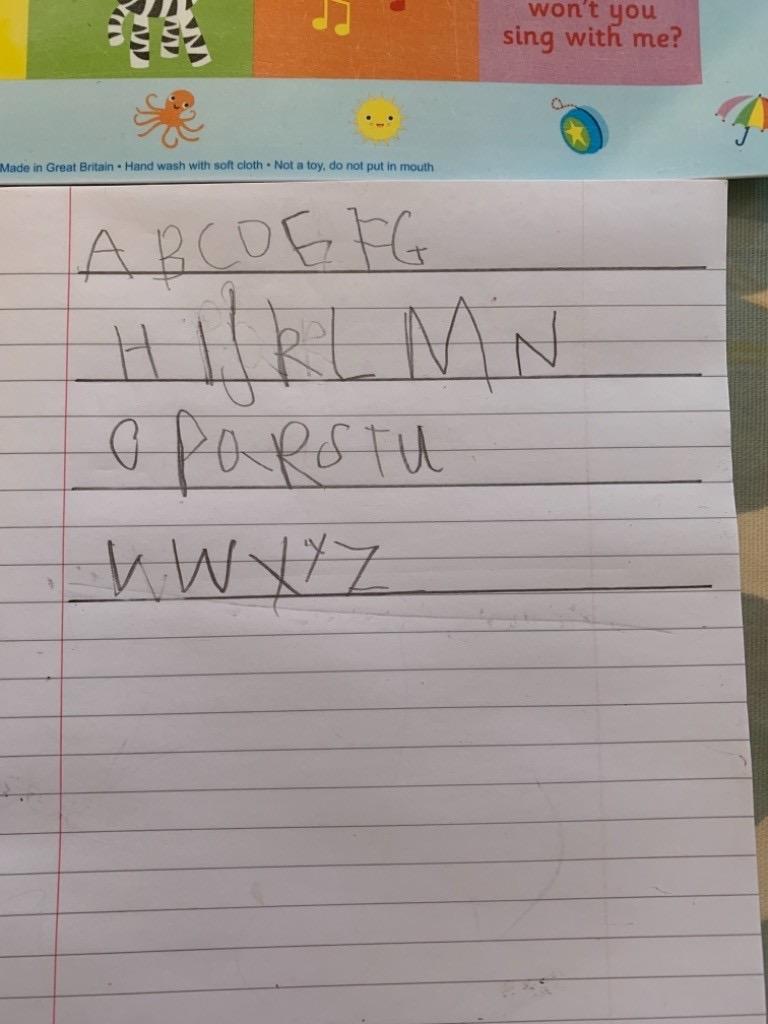 won't you
sing with me?
Made in Great Britain • Hand wash with soft cloth • Not a toy, do not put in mouth
A B C D E F G
H I J K L M N
O P Q R S T U
V W X Y Z